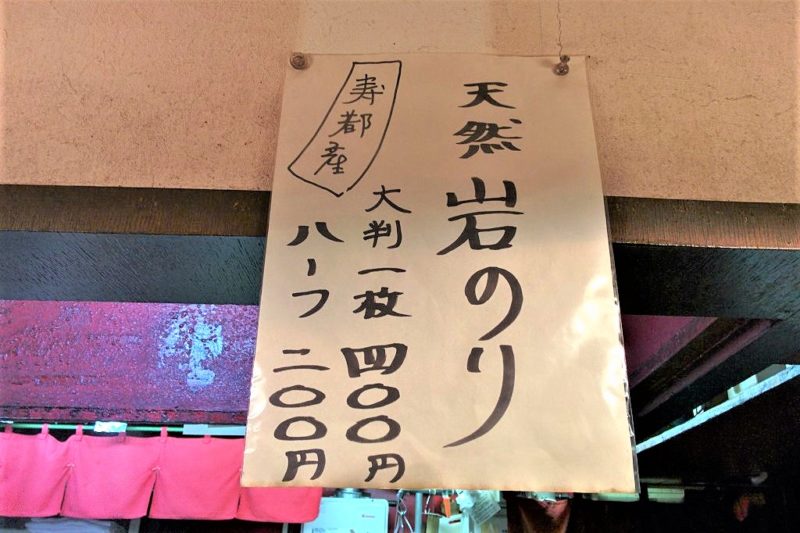 天然岩のり
寿都産
大判一枚四〇〇円
ハーフ二〇〇円